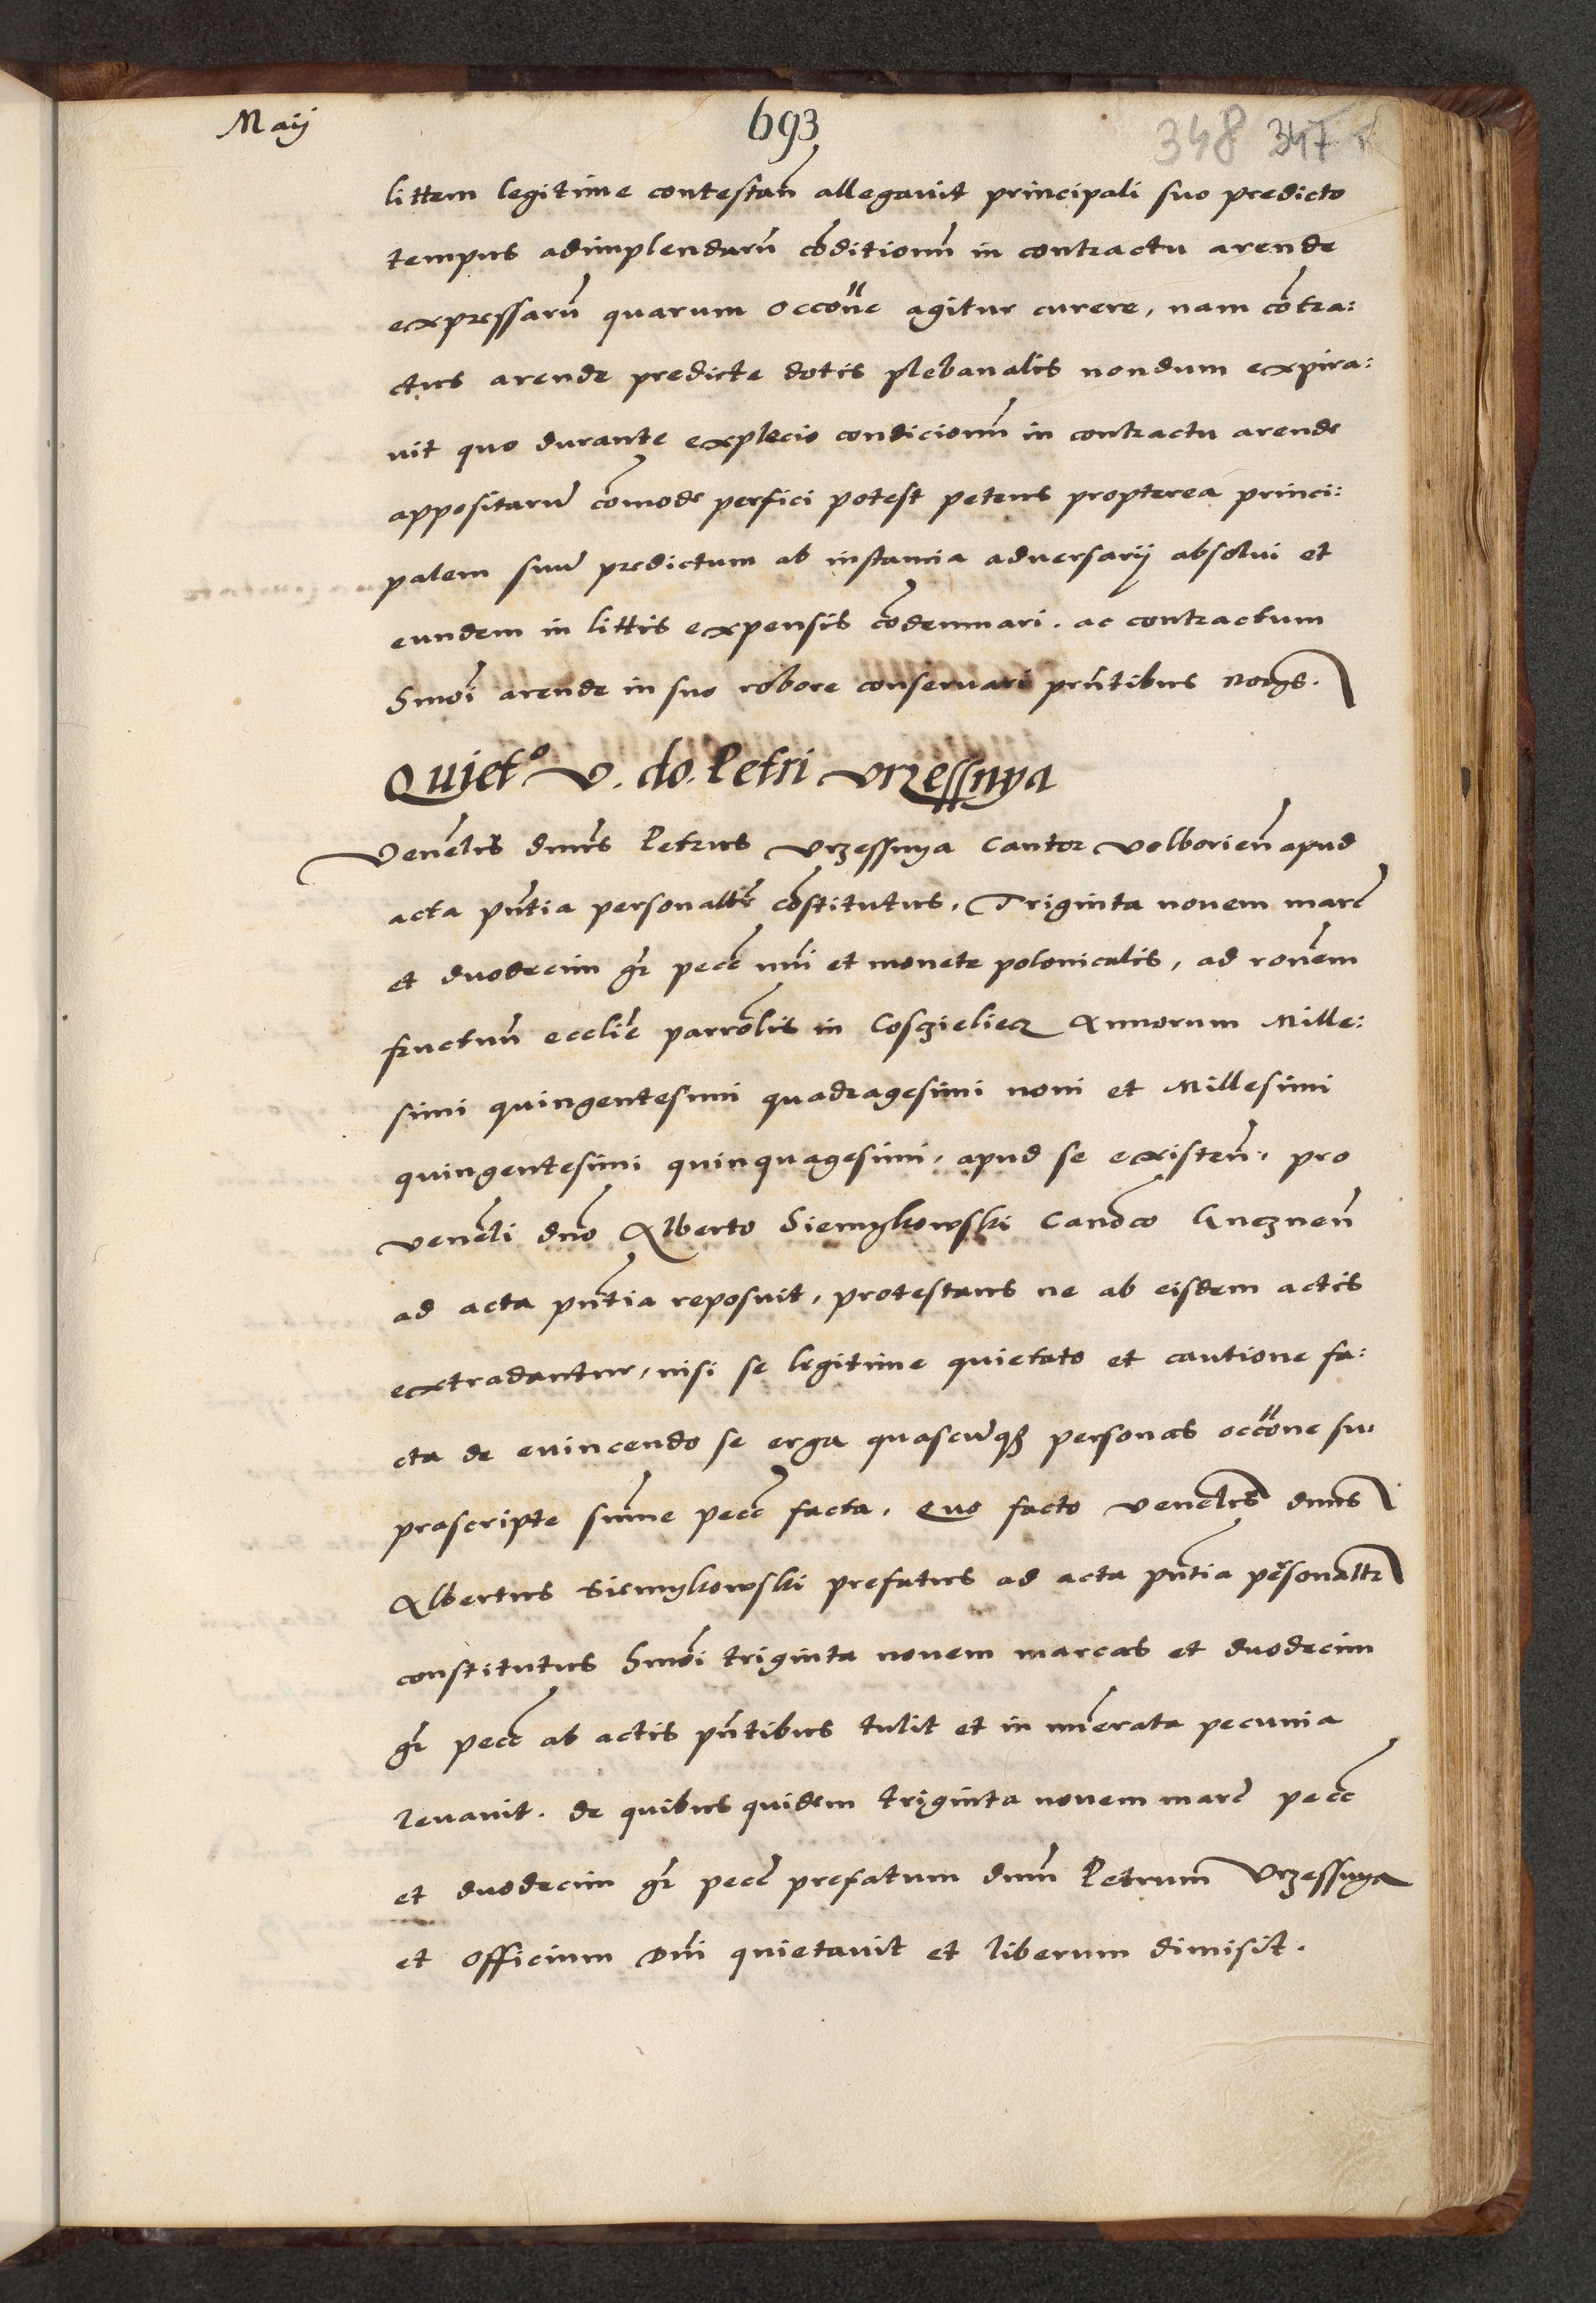 Maij
693
348 347
littem legitime contestan̄ allegavit principali suo predicto
tempus adimplendarū cōditionū in contractu arende
expressarū quarum occōne agitur currere, nam cōtra:
ctus arende predicte dotis plebanalis nondum expira:
vit quo durante explecio condicionū in contractu arende
appositarū cōmode perfici potest petens propterea princi:
palem suū predictum ab instancia adversarij absolui et
eundem in littis expensis cōdemnari. ac contractum
hmōi arende in suo robore conservari pn̄tibus
Quiet° v. do. Petri vrzessnya
Venēlis dn̄us Petrus vrzessnya Cantor volborien̄ apud
acta pn̄tia personalr̄ cōstitutus, Triginta novem marc̄
et duodecim gr̄ pecc̄ nr̄i et monete polonicalis, ad rōnem
fructuū ecclīe parrōlis in Cosczieliecz Annorum Mille:
simi quingentesimi quadragesimi noni et Millesimi
quingentesimi quinquagesimi, apud se existen̄, pro
venēli dn̄o Alberto Siemykowski Canōco Gneznen̄
ad acta pn̄tia reposuit, protestans ne ab eisdem actis
extradantur, nisi se legitime quietato et cautione fa:
cta de evincendo se erga quascūqȝ personas occōne su:
prascripte sūme pecc̄ facta. Quo facto venēlis dn̄us
Albertus Siemykowski prefatus ad acta pn̄tia personalr̄
constitutus hmōi triginta novem marcas et duodecim
gr̄ pecc̄ ab actis pn̄tibus tulit et in nūerata pecunia
levavit. de quibus quidem triginta novem marc̄ pecc̄
et duodecim gr̄ pecc̄ prefatum dn̄m Petrum Vrzessnya
et officium dn̄i quietavit et liberum dimisit.